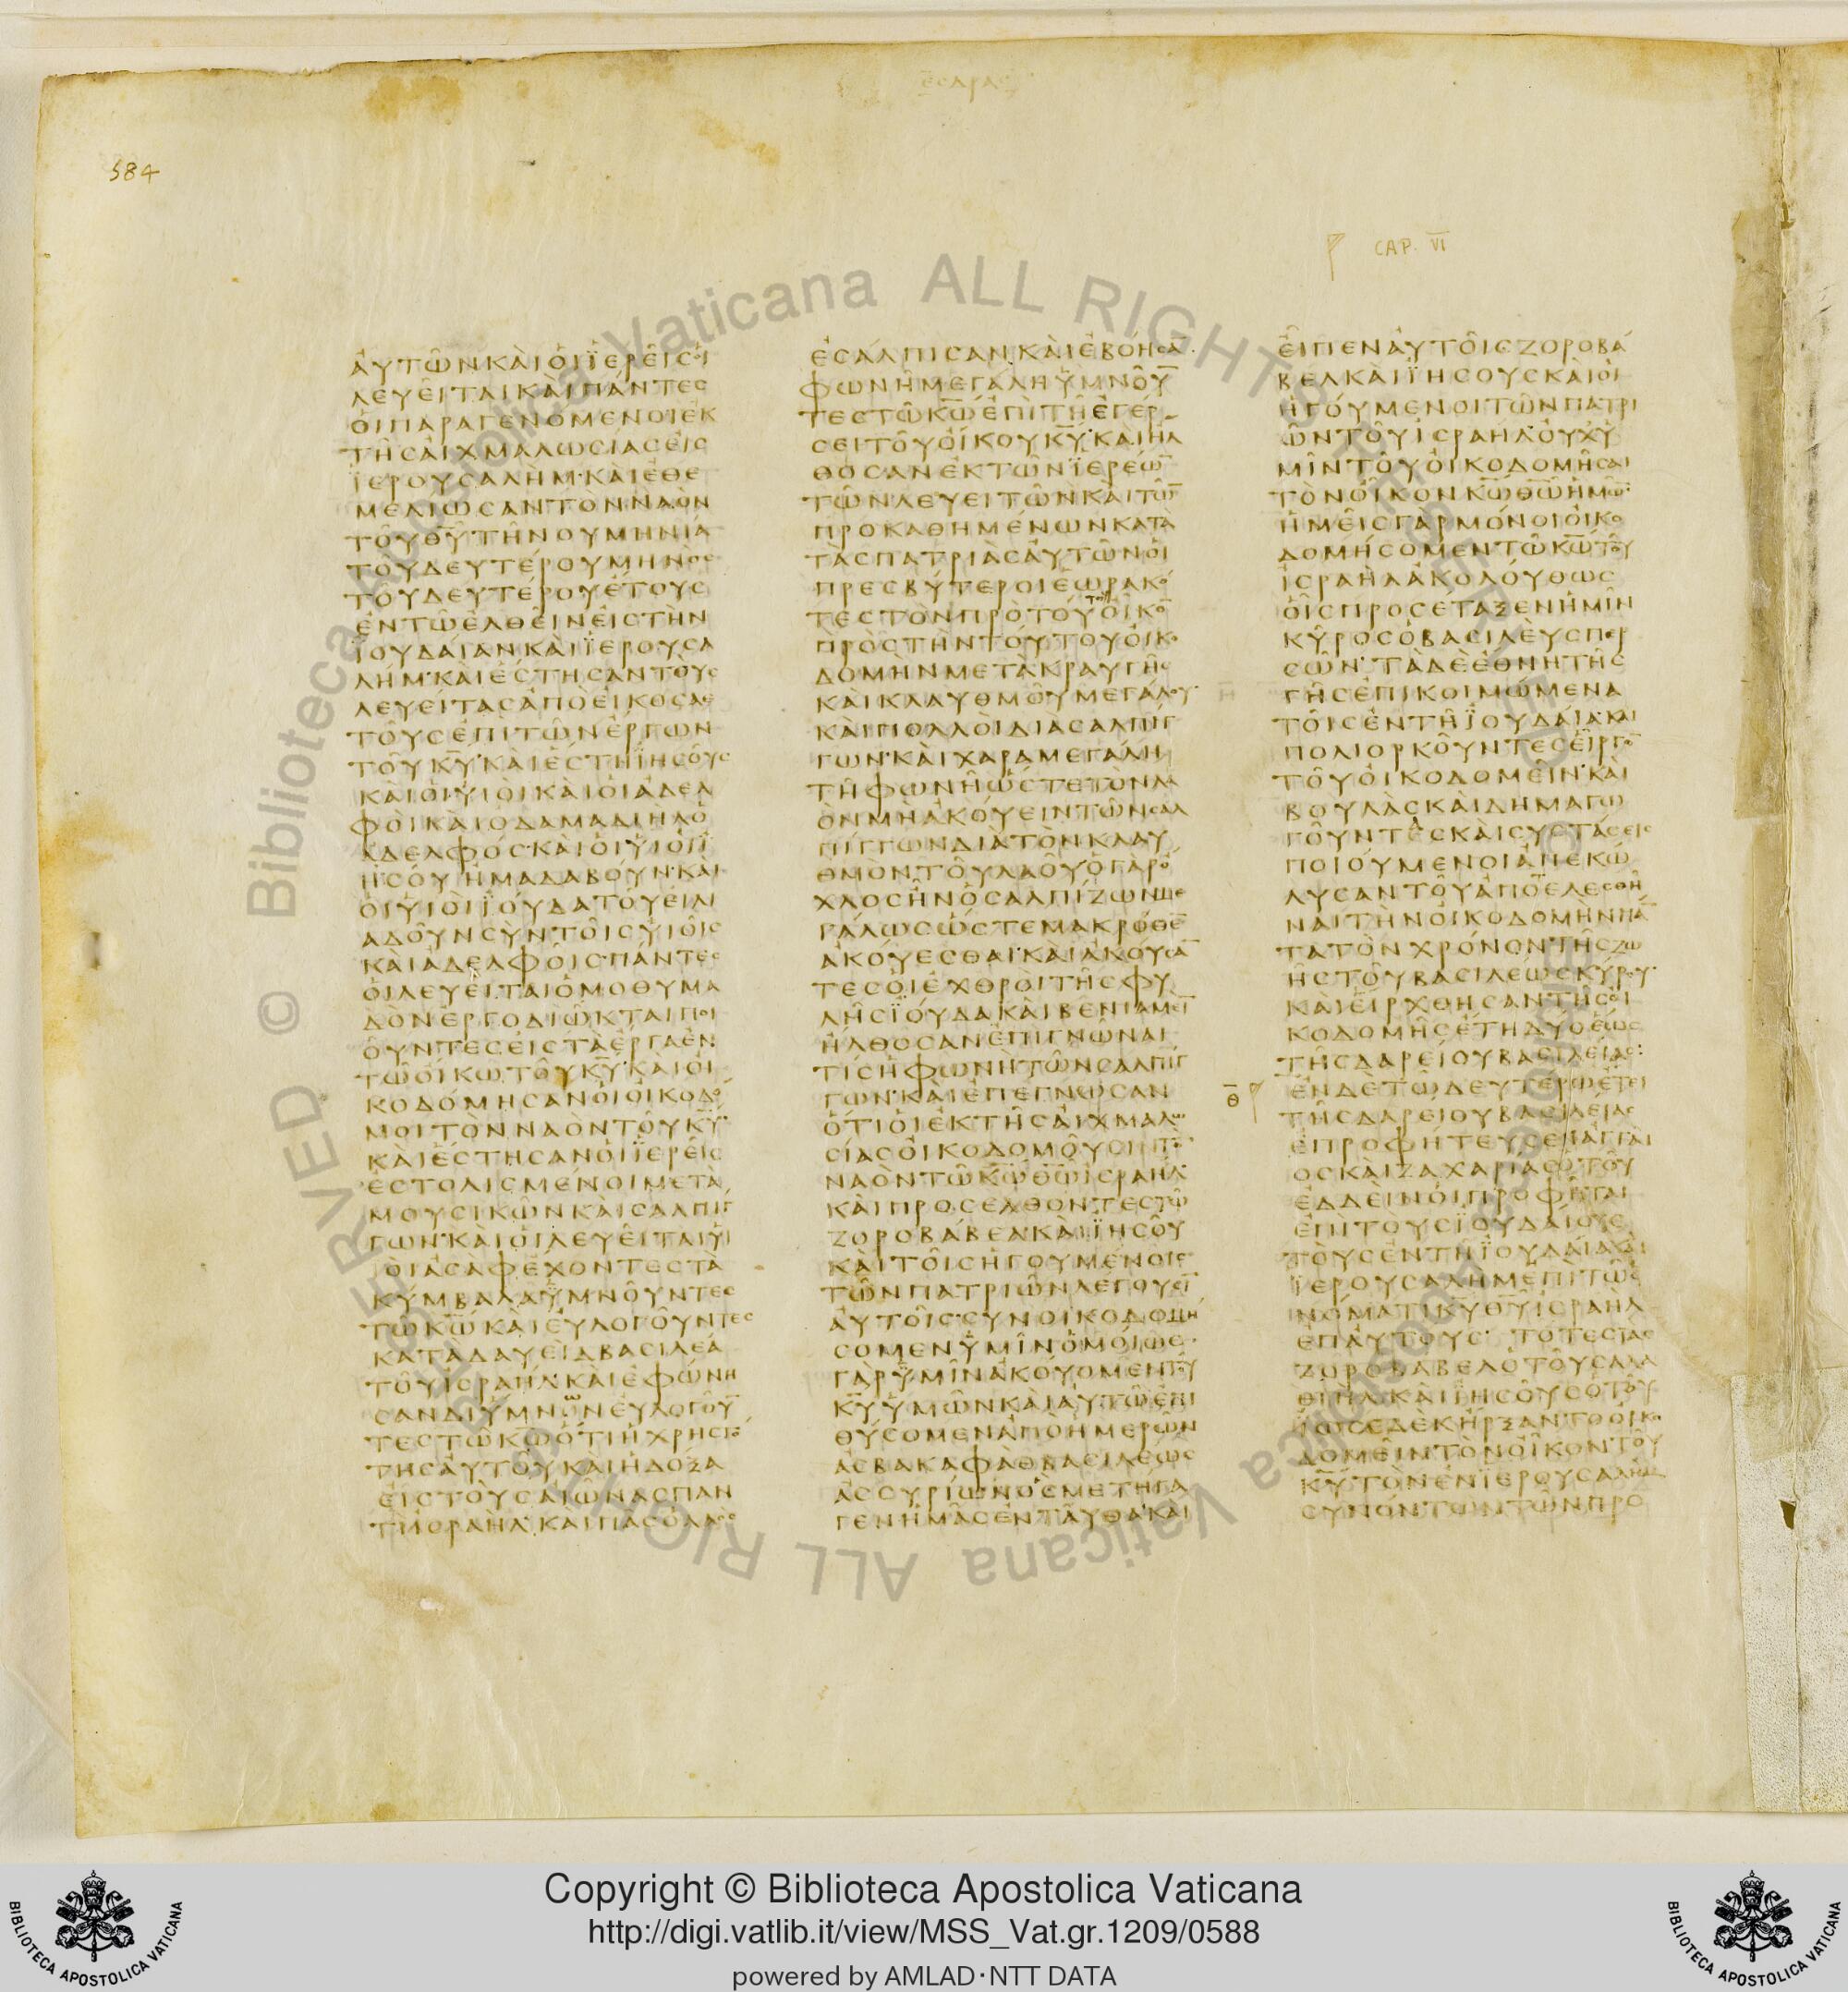 ΕΣΔΡΑΣ
584
CAP. VI
ΑΥΤΩΝΚΑΙΟΙΙΕΡΕΙϹΟΙ
ΛΕΥΕΙΤΑΙΚΑΙΠΑΝΤΕϹ
ΟΙΠΑΡΑΓΕΝΟΜΕΝΟΙΕΚ
ΤΗϹΑΙΧΜΑΛΩϹΙΑϹΕΙϹ
ΙΕΡΟΥϹΑΛΗΜ·ΚΑΙΕΘΕ
ΜΕΛΙΩϹΑΝΤΟΝΝΑΟΝ
ΤΟΥΘΥ̅ΤΗΝΟΥΜΗΝΙΑ
ΤΟΥΔΕΥΤΕΡΟΥΜΗΝΟϹ
ΤΟΥΔΕΥΤΕΡΟΥΕΤΟΥϹ
ΕΝΤΩΕΛΘΕΙΝΕΙϹΤΗΝ
ΙΟΥΔΑΙΑΝΚΑΙΙΕΡΟΥϹΑ
ΛΗΜ·ΚΑΙΕϹΤΗϹΑΝΤΟΥϹ
ΛΕΥΕΙΤΑϹΑΠΟΕΙΚΟϹΑΕ
ΤΟΥϹΕΠΙΤΩΝΕΡΓΩΝ
ΤΟΥΚΥ̅·ΚΑΙΕϹΤΗΙΗϹΟΥϹ
ΚΑΙΟΙΥΙΟΙΚΑΙΟΙΑΔΕΛ
ΦΟΙΚΑΙΟΔΑΜΑΔΙΗΛΟ
ΑΔΕΛΦΟϹ·ΚΑΙΟΙΥΙΟΙΙ
ΗϹΟΥΗΜΑΔΑΒΟΥΝ·ΚΑΙ
ΟΙΥΙΟΙΙΟΥΔΑΤΟΥΕΙΛΙ
ΑΔΟΥΝϹΥΝΤΟΙϹΥΙΟΙϹ
ΚΑΙΑΔΕΛΦΟΙϹ·ΠΑΝΤΕϹ
ΟΙΛΕΥΕΙΤΑΙΟΜΟΘΥΜΑ
ΔΟΝΕΡΓΟΔΙΩΚΤΑΙΠΟΙ
ΟΥΝΤΕϹΕΙϹΤΑΕΡΓΑΕΝ
ΤΩΟΙΚΩΤΟΥΚΥ̅·ΚΑΙΟΙ
ΚΟΔΟΜΗϹΑΝΟΙΟΙΚΟΔΟ
ΜΟΙΤΟΝΝΑΟΝΤΟΥΚΥ̅·
ΚΑΙΕϹΤΗϹΑΝΟΙΙΕΡΕΙϹ
ΕϹΤΟΛΙϹΜΕΝΟΙΜΕΤΑ
ΜΟΥϹΙΚΩΝΚΑΙϹΑΛΠΙΓ
ΓΩΝ·ΚΑΙΟΙΛΕΥΕΙΤΑΙΥΙ
ΟΙΑϹΑΦΕΧΟΝΤΕϹΤΑ
ΚΥΜΒΑΛΑΥΜΝΟΥΝΤΕϹ
ΤΩΚΩ̅ΚΑΙΕΥΛΟΓΟΥΝΤΕϹ
ΚΑΤΑΔΑΥΕΙΔΒΑϹΙΛΕΑ
ΤΟΥΙϹΡΑΗΛ·ΚΑΙΕΦΩΝΗ
ϹΑΝΔΙΥΜΝΩΝΕΥΛΟΓΟΥ̅
ΤΕϹΤΩΚΩ̅ΟΤΙΗΧΡΗϹΤΟ
ΤΗϹΑΥΤΟΥΚΑΙΗΔΟΞΑ
ΕΙϹΤΟΥϹΑΙΩΝΑϹΠΑΝ
ΤΙΙϹΡΑΗΛ·ΚΑΙΠΑϹΟΛΑΟϹ
ΕϹΑΛΠΙϹΑΝΚΑΙΕΒΟΗϹΑ
ΦΩΝΗΜΕΓΑΛΗΥΜΝΟΥ̅
ΤΕϹΤΩΚΩ̅ΕΠΙΤΗΕΓΕΡ
ϹΕΙΤΟΥΟΙΚΟΥΚΥ̅·ΚΑΙΗΛ
ΘΟϹΑΝΕΚΤΩΝΙΕΡΕΩ̅
ΤΩΝΛΕΥΕΙΤΩΝΚΑΙΤΩ̅
ΠΡΟΚΑΘΗΜΕΝΩΝΚΑΤΑ
ΤΑϹΠΑΤΡΙΑϹΑΥΤΩΝΟΙ
ΠΡΕϹΒΥΤΕΡΟΙΕΩΡΑΚΟ
ΤΕϹΤΟΝΠΡΟΤΟΥΤΟΥΟΙΚΟ̅
ΠΡΟϹΤΗΝΤΟΥΤΟΥΟΙΚΟ
ΔΟΜΗΝΜΕΤΑΚΡΑΥΓΗϹ
ΚΑΙΚΛΑΥΘΜΟΥΜΕΓΑΛΟΥ·
ΚΑΙΠΟΛΛΟΙΔΙΑϹΑΛΠΙΓ
ΓΩΝ·ΚΑΙΧΑΡΑΜΕΓΑΛΗ
ΤΗΦΩΝΗΩϹΤΕΤΟΝΛΑ
ΟΝΜΗΑΚΟΥΕΙΝΤΩΝϹΑΛ
ΠΙΓΓΩΝΔΙΑΤΟΝΚΛΑΥ
ΘΜΟΝΤΟΥΛΑΟΥΟΓΑΡΟ
ΧΛΟϹΗΝΟϹΑΛΠΙΖΩΝΜΕ
ΓΑΛΩϹΩϹΤΕΜΑΚΡΟΘΕ̅
ΑΚΟΥΕϹΘΑΙ·ΚΑΙΑΚΟΥϹΑ̅
ΤΕϹΟΙΕΧΘΡΟΙΤΗϹΦΥ
ΛΗϹΙΟΥΔΑΚΑΙΒΕΝΙΑΜΕΙ̅
ΗΛΘΟϹΑΝΕΠΙΓΝΩΝΑΙ
ΤΙϹΗΦΩΝΗΤΩΝϹΑΛΠΙΓ
ΓΩΝ·ΚΑΙΕΠΕΓΝΩϹΑΝ
ΟΤΙΟΙΕΚΤΗϹΑΙΧΜΑΛΩ
ϹΙΑϹΟΙΚΟΔΟΜΟΥϹΙΝΤΟ̅
ΝΑΟΝΤΩΚΩ̅ΘΩ̅ΙϹΡΑΗΛ·
ΚΑΙΠΡΟϹΕΛΘΟΝΤΕϹΤΩ
ΖΟΡΟΒΑΒΕΛΚΑΙΙΗϹΟΥ
ΚΑΙΤΟΙϹΗΓΟΥΜΕΝΟΙϹ
ΤΩΝΠΑΤΡΙΩΝΛΕΓΟΥϹΙ̅
ΑΥΤΟΙϹ·ϹΥΝΟΙΚΟΔΟΜΗ
ϹΟΜΕΝΥΜΙΝΟΜΟΙΩϹ·
ΓΑΡΥΜΙΝΑΚΟΥΟΜΕΝΤΟΥ
ΚΥ̅ΥΜΩΝΚΑΙΑΥΤΩΕΠΙ
ΘΥϹΟΜΕΝΑΠΟΗΜΕΡΩΝ
ΑϹΒΑΚΑΦΑΘΒΑϹΙΛΕΩϹ
ΑϹϹΥΡΙΩΝΟϹΜΕΤΗΓΑ
ΓΕΝΗΜΑϹΕΝΤΑΥΘΑ·ΚΑΙ
ΕΙΠΕΝΑΥΤΟΙϹΖΟΡΟΒΑ
ΒΕΛΚΑΙΙΗϹΟΥϹΚΑΙΟΙ
ΗΓΟΥΜΕΝΟΙΤΩΝΠΑΤΡΙ
ΩΝΤΟΥΙϹΡΑΗΛ·ΟΥΧΥ
ΜΙΝΤΟΥΟΙΚΟΔΟΜΗϹΑΙ
ΤΟΝΟΙΚΟΝΚΩ̅ΘΩ̅ΗΜΩ̅·
ΗΜΕΙϹΓΑΡΜΟΝΟΙΟΙΚΟ
ΔΟΜΗϹΟΜΕΝΤΩΚΩ̅ΤΟΥ
ΙϹΡΑΗΛΑΚΟΛΟΥΘΩϹ
ΟΙϹΠΡΟϹΕΤΑΞΕΝΗΜΙΝ
ΚΥΡΟϹΟΒΑϹΙΛΕΥϹΠΕΡ
ϹΩΝ·ΤΑΔΕΕΘΝΗΤΗϹ
ΓΗϹΕΠΙΚΟΙΜΩΜΕΝΑ
ΤΟΙϹΕΝΤΗΙΟΥΔΑΙΑΚΑΙ
ΠΟΛΙΟΡΚΟΥΝΤΕϹΕΙΡΓΟ̅
ΤΟΥΟΙΚΟΔΟΜΕΙΝ·ΚΑΙ
ΒΟΥΛΑϹΚΑΙΔΗΜΑΓΩ
ΓΟΥΝΤΕϹΚΑΙϹΥϹΤΑϹΕΙϹ
ΠΟΙΟΥΜΕΝΟΙΑΠΕΚΩ
ΛΥϹΑΝΤΟΥΑΠΟΤΕΛΕϹΘΗ
ΝΑΙΤΗΝΟΙΚΟΔΟΜΗΝΠΑ̅
ΤΑΤΟΝΧΡΟΝΟΝΤΗϹΖΩ
ΗϹΤΟΥΒΑϹΙΛΕΩϹΚΥΡΟΥ·
ΚΑΙΕΙΡΧΘΗϹΑΝΤΗϹΟΙ
ΚΟΔΟΜΗϹΕΤΗΔΥΟΕΩϹ
ΤΗϹΔΑΡΕΙΟΥΒΑϹΙΛΕΙΑϹ:
Θ̅
ΕΝΔΕΤΩΔΕΥΤΕΡΩΕΤΕΙ
ΤΗϹΔΑΡΕΙΟΥΒΑϹΙΛΕΙΑϹ
ΕΠΡΟΦΗΤΕΥϹΕΝΑΓΓΑΙ
ΟϹΚΑΙΖΑΧΑΡΙΑϹΟΤΟΥ
ΕΔΔΕΙΝΟΙΠΡΟΦΗΤΑΙ
ΕΠΙΤΟΥϹΙΟΥΔΑΙΟΥϹ
ΤΟΥϹΕΝΤΗΙΟΥΔΑΙΑΚΑΙ
ΙΕΡΟΥϹΑΛΗΜΕΠΙΤΩΟ
ΝΟΜΑΤΙΚΥ̅ΘΥ̅ΙϹΡΑΗΛ
ΕΠΑΥΤΟΥϹ· ΤΟΤΕϹΤΑϹ
ΖΟΡΟΒΑΒΕΛΟΤΟΥϹΑΛΑ
ΘΙΗΛ·ΚΑΙΙΗϹΟΥϹΟΤΟΥ
ΙΩϹΕΔΕΚΗΡΞΑΝΤΟΟΙΚΟ
ΔΟΜΕΙΝΤΟΝΟΙΚΟΝΤΟΥ
ΚΥ̅ΤΟΝΕΝΙΕΡΟΥϹΑΛΗΜ
ϹΥΝΟΝΤΩΝΤΩΝΠΡΟ
Copyright © Biblioteca Apostolica Vaticana
http://digi.vatlib.it/view/MSS_Vat.gr.1209/0588
powered by AMLAD·NTT DATA
BIBLIOTECA APOSTOLICA VATICANA
BIBLIOTECA APOSTOLICA VATICANA